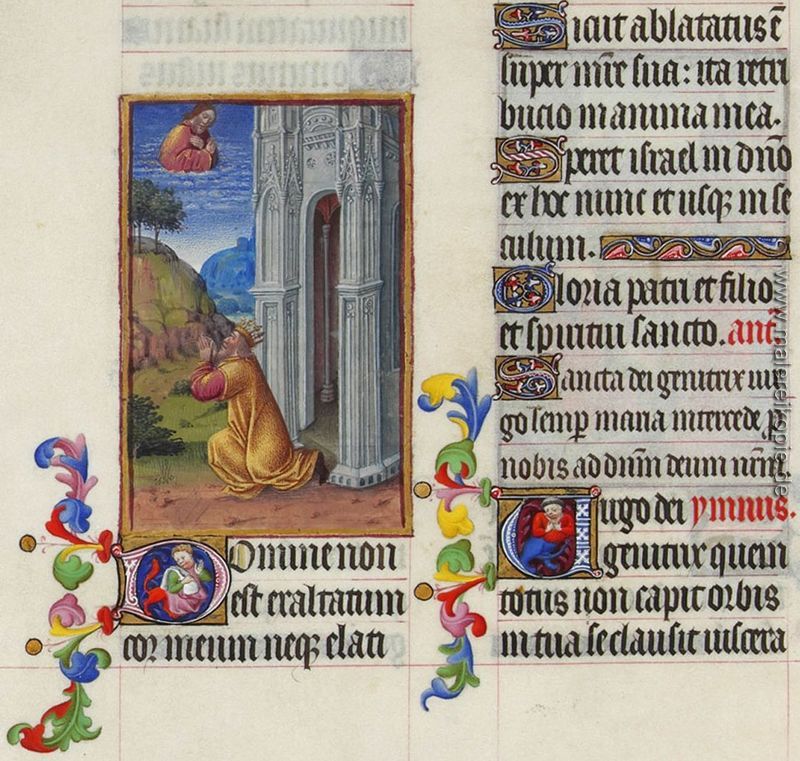 Domine non
est exaltatum
cor meum neqꝫ elati
Sicut ablatatus ē
super mr̄e sua: ita retri
bucio in anima mea.
Speret israel in dn̄o
ex hoc nunc et usqꝫ in se
culum.
Gloria patri et filio
et spiritui sancto. ant̄.
Sancta dei genitrix uir
go semꝑ maria intercede ꝓ
nobis ad dn̄m deum nr̄m.
Uirgo dei ymnus.
genitrix quem
totus non capit orbis
in tua se clausit uiscera
www.malereikopie.de